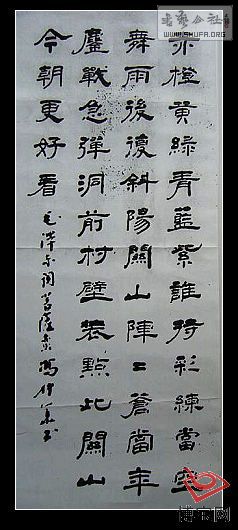 赤橙黃綠青藍紫誰持彩練當空
舞雨後復斜陽關山陣〻蒼當年
鏖戰急彈洞前村壁裝點此關山
今朝更好看
毛澤东詞菩薩蛮
书艺公社
WWW.SHUFA.ORG
博宝网